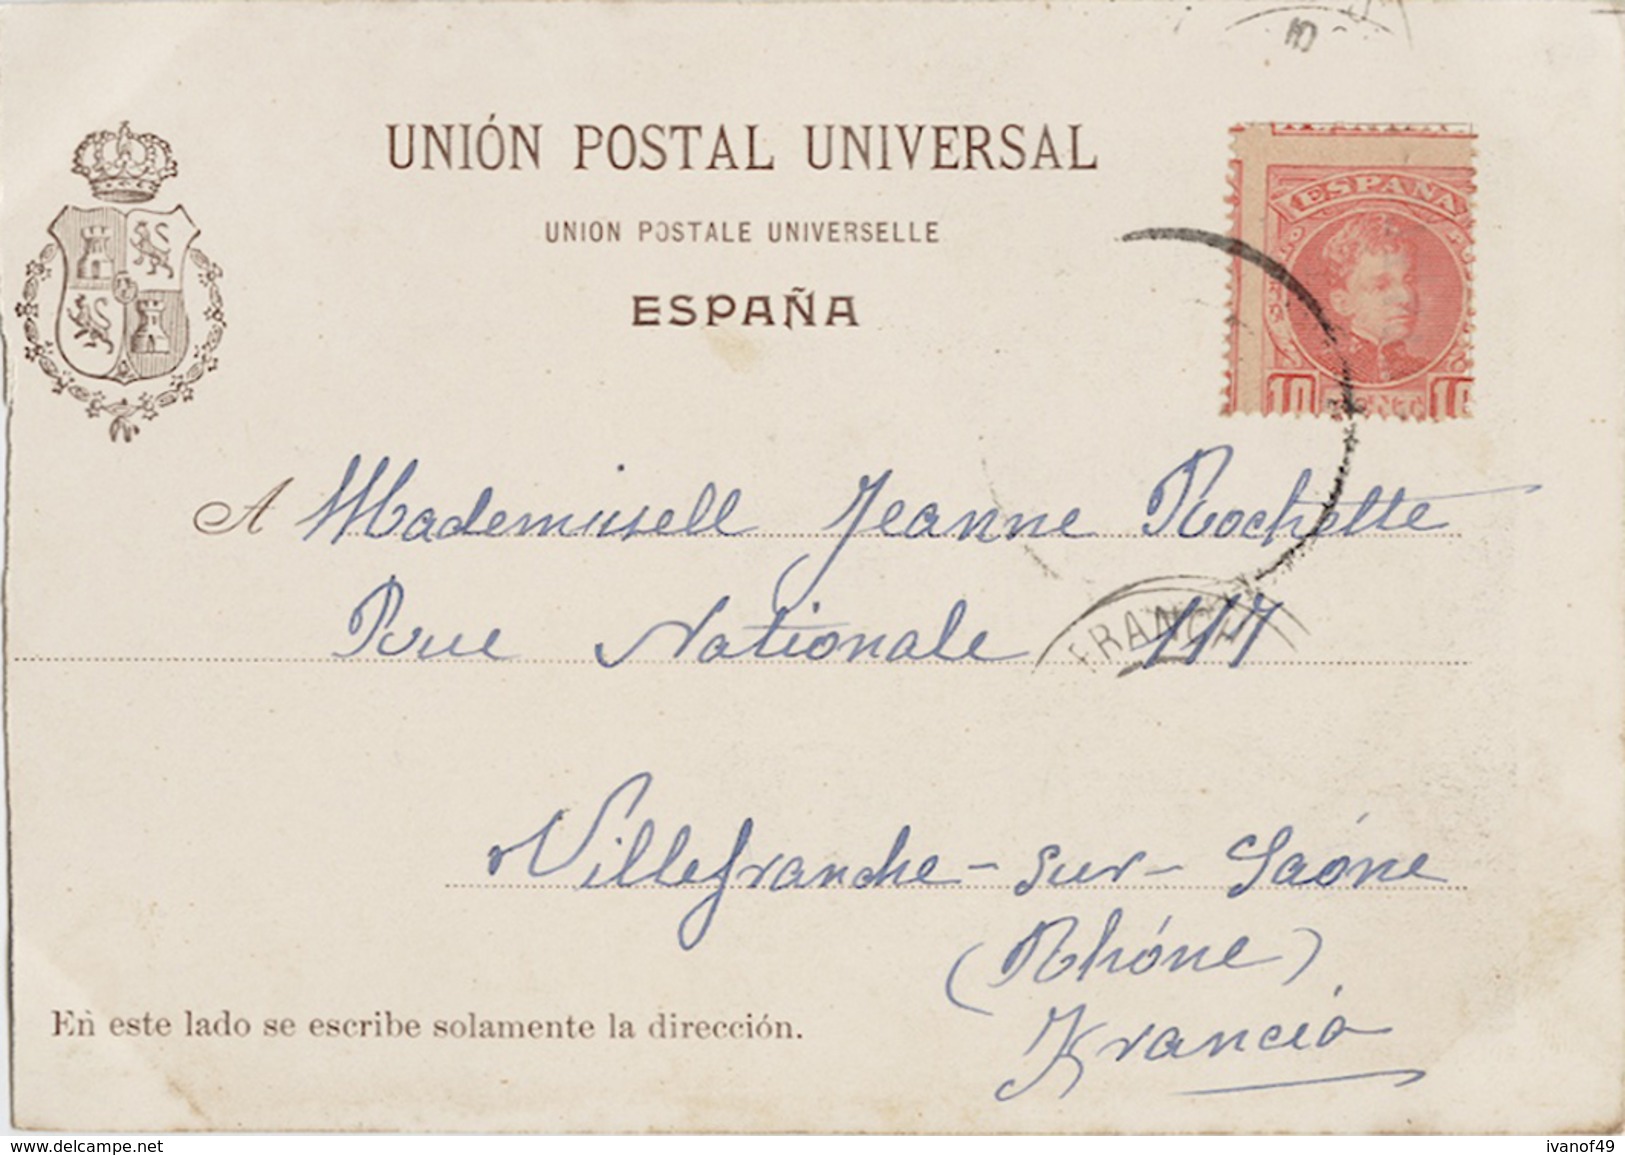 UNIÓN POSTAL UNIVERSAL
UNION POSTALE UNIVERSELLE
ESPAÑA
ESPAÑA
10 CENT 10
A Mademisell Jeanne Rochette
Rue Nationale 117
FRANCE
Villefranche-sur-Saóne
(Rhóne)
Francia
En este lado se escribe solamente la dirección.
www.delcampe.net
ivanof49